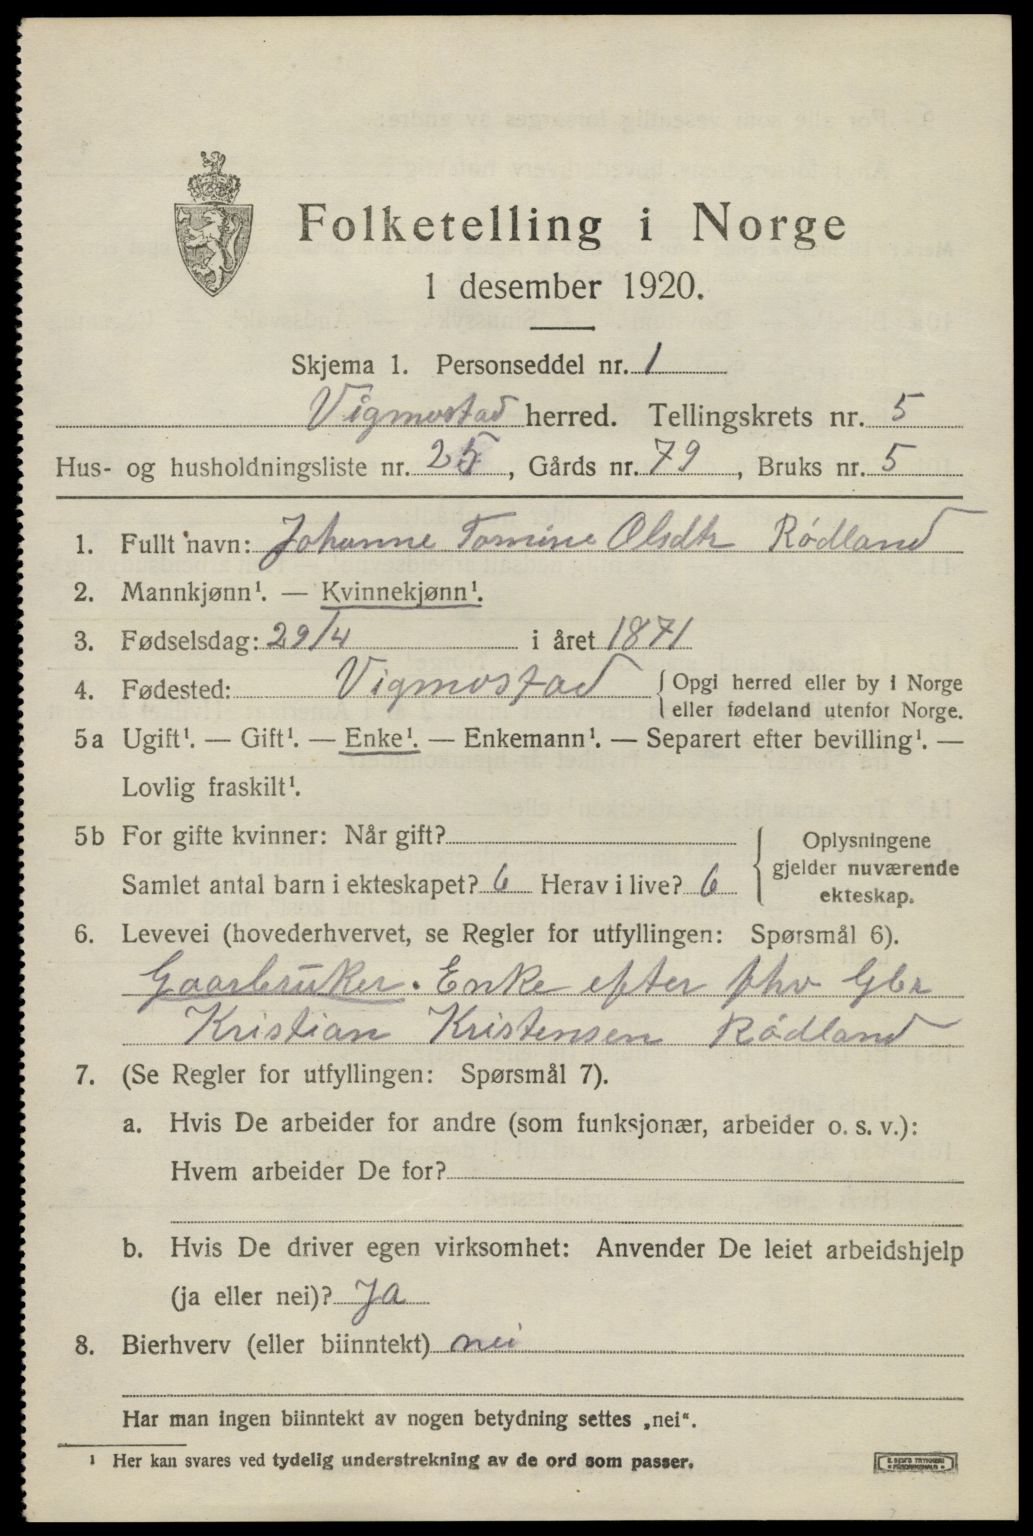 Folketelling i Norge
1 desember 1920.
Skjema 1. Personseddel nr. 1
Vigmostad herred. Tellingskrets nr. 5
Hus- og husholdningsliste nr. 25, Gårds nr. 79, Bruks nr. 5
1. Fullt navn: Johanne Tomine Olsdtr Rødland
2. Mannkjønn¹. — Kvinnekjønn¹.
3. Fødselsdag: 29/4 i året 1871
4. Fødested: Vigmostad { Opgi herred eller by i Norge
eller fødeland utenfor Norge.
5a Ugift¹. — Gift¹. — Enke¹. — Enkemann¹. — Separert efter bevilling¹. —
Lovlig fraskilt¹.
5b For gifte kvinner: Når gift?
Samlet antal barn i ekteskapet? 6 Herav i live? 6
Oplysningene
gjelder nuværende
ekteskap.
6. Levevei (hovederhvervet, se Regler for utfyllingen: Spørsmål 6).
Gaarbruker. Enke efter fhv Gbr
Kristian Kristensen Rødland
7. (Se Regler for utfyllingen: Spørsmål 7).
a. Hvis De arbeider for andre (som funksjonær, arbeider o. s. v.):
Hvem arbeider De for?
b. Hvis De driver egen virksomhet: Anvender De leiet arbeidshjelp
(ja eller nei)? Ja
8. Bierhverv (eller biinntekt) nei
Har man ingen biinntekt av nogen betydning settes „nei“.
¹ Her kan svares ved tydelig understrekning av de ord som passer.